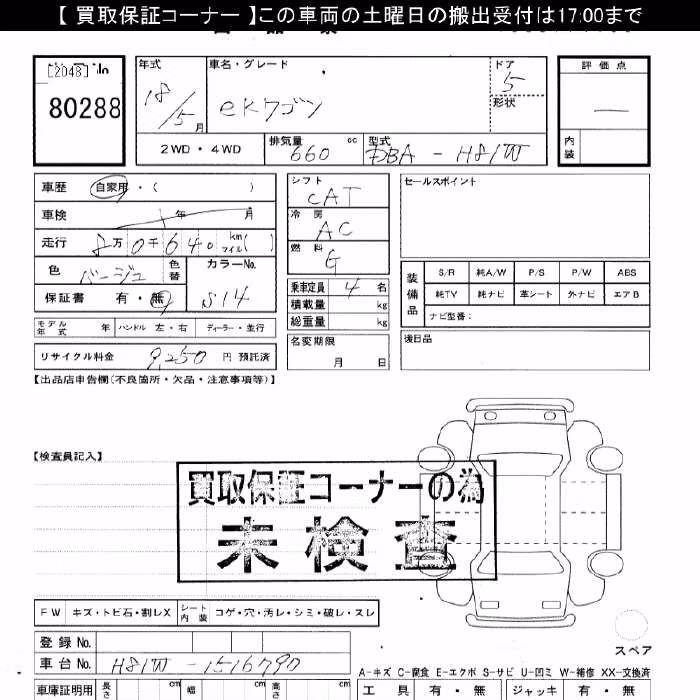 【 買取保証コーナー 】この車両の土曜日の搬出受付は17:00まで
[2048] No
80288
年式
18/5 月
車名・グレード
eKワゴン
ドア
5
形状
評価点
内装
2WD・4WD
排気量 660 cc
型式 DBA - H81W
車歴 自家用・( )
車検 年 月
走行 8万0千640 km マイル( )
色 ベージュ 色替
カラーNo. S14
保証書 有・無
シフト CAT
冷房 AC
燃料 G
乗車定員 4 名
積載量 kg
総重量 kg
名変期限
月 日
セールスポイント
装備品
S/R 純A/W P/S P/W ABS
純TV 純ナビ 革シート 外ナビ エアB
ナビ型番:
後日品
モデル年式 年 ハンドル 左・右 ディーラー・並行
リサイクル料金 9,250 円 預託済
【出品店申告欄(不良箇所・欠品・注意事項等)】
【検査員記入】
買取保証コーナーの為
未検査
FW キズ・トビ石・割レX シート内装 コゲ・穴・汚レ・シミ・破レ・スレ
スペア
登録No.
車台No. H81W - 1516790
A-キズ C-腐食 E-エクボ S-サビ U-凹ミ W-補修 XX-交換済
車庫証明用 長さ cm 幅 cm 高さ cm
工具 有・無 ジャッキ 有・無